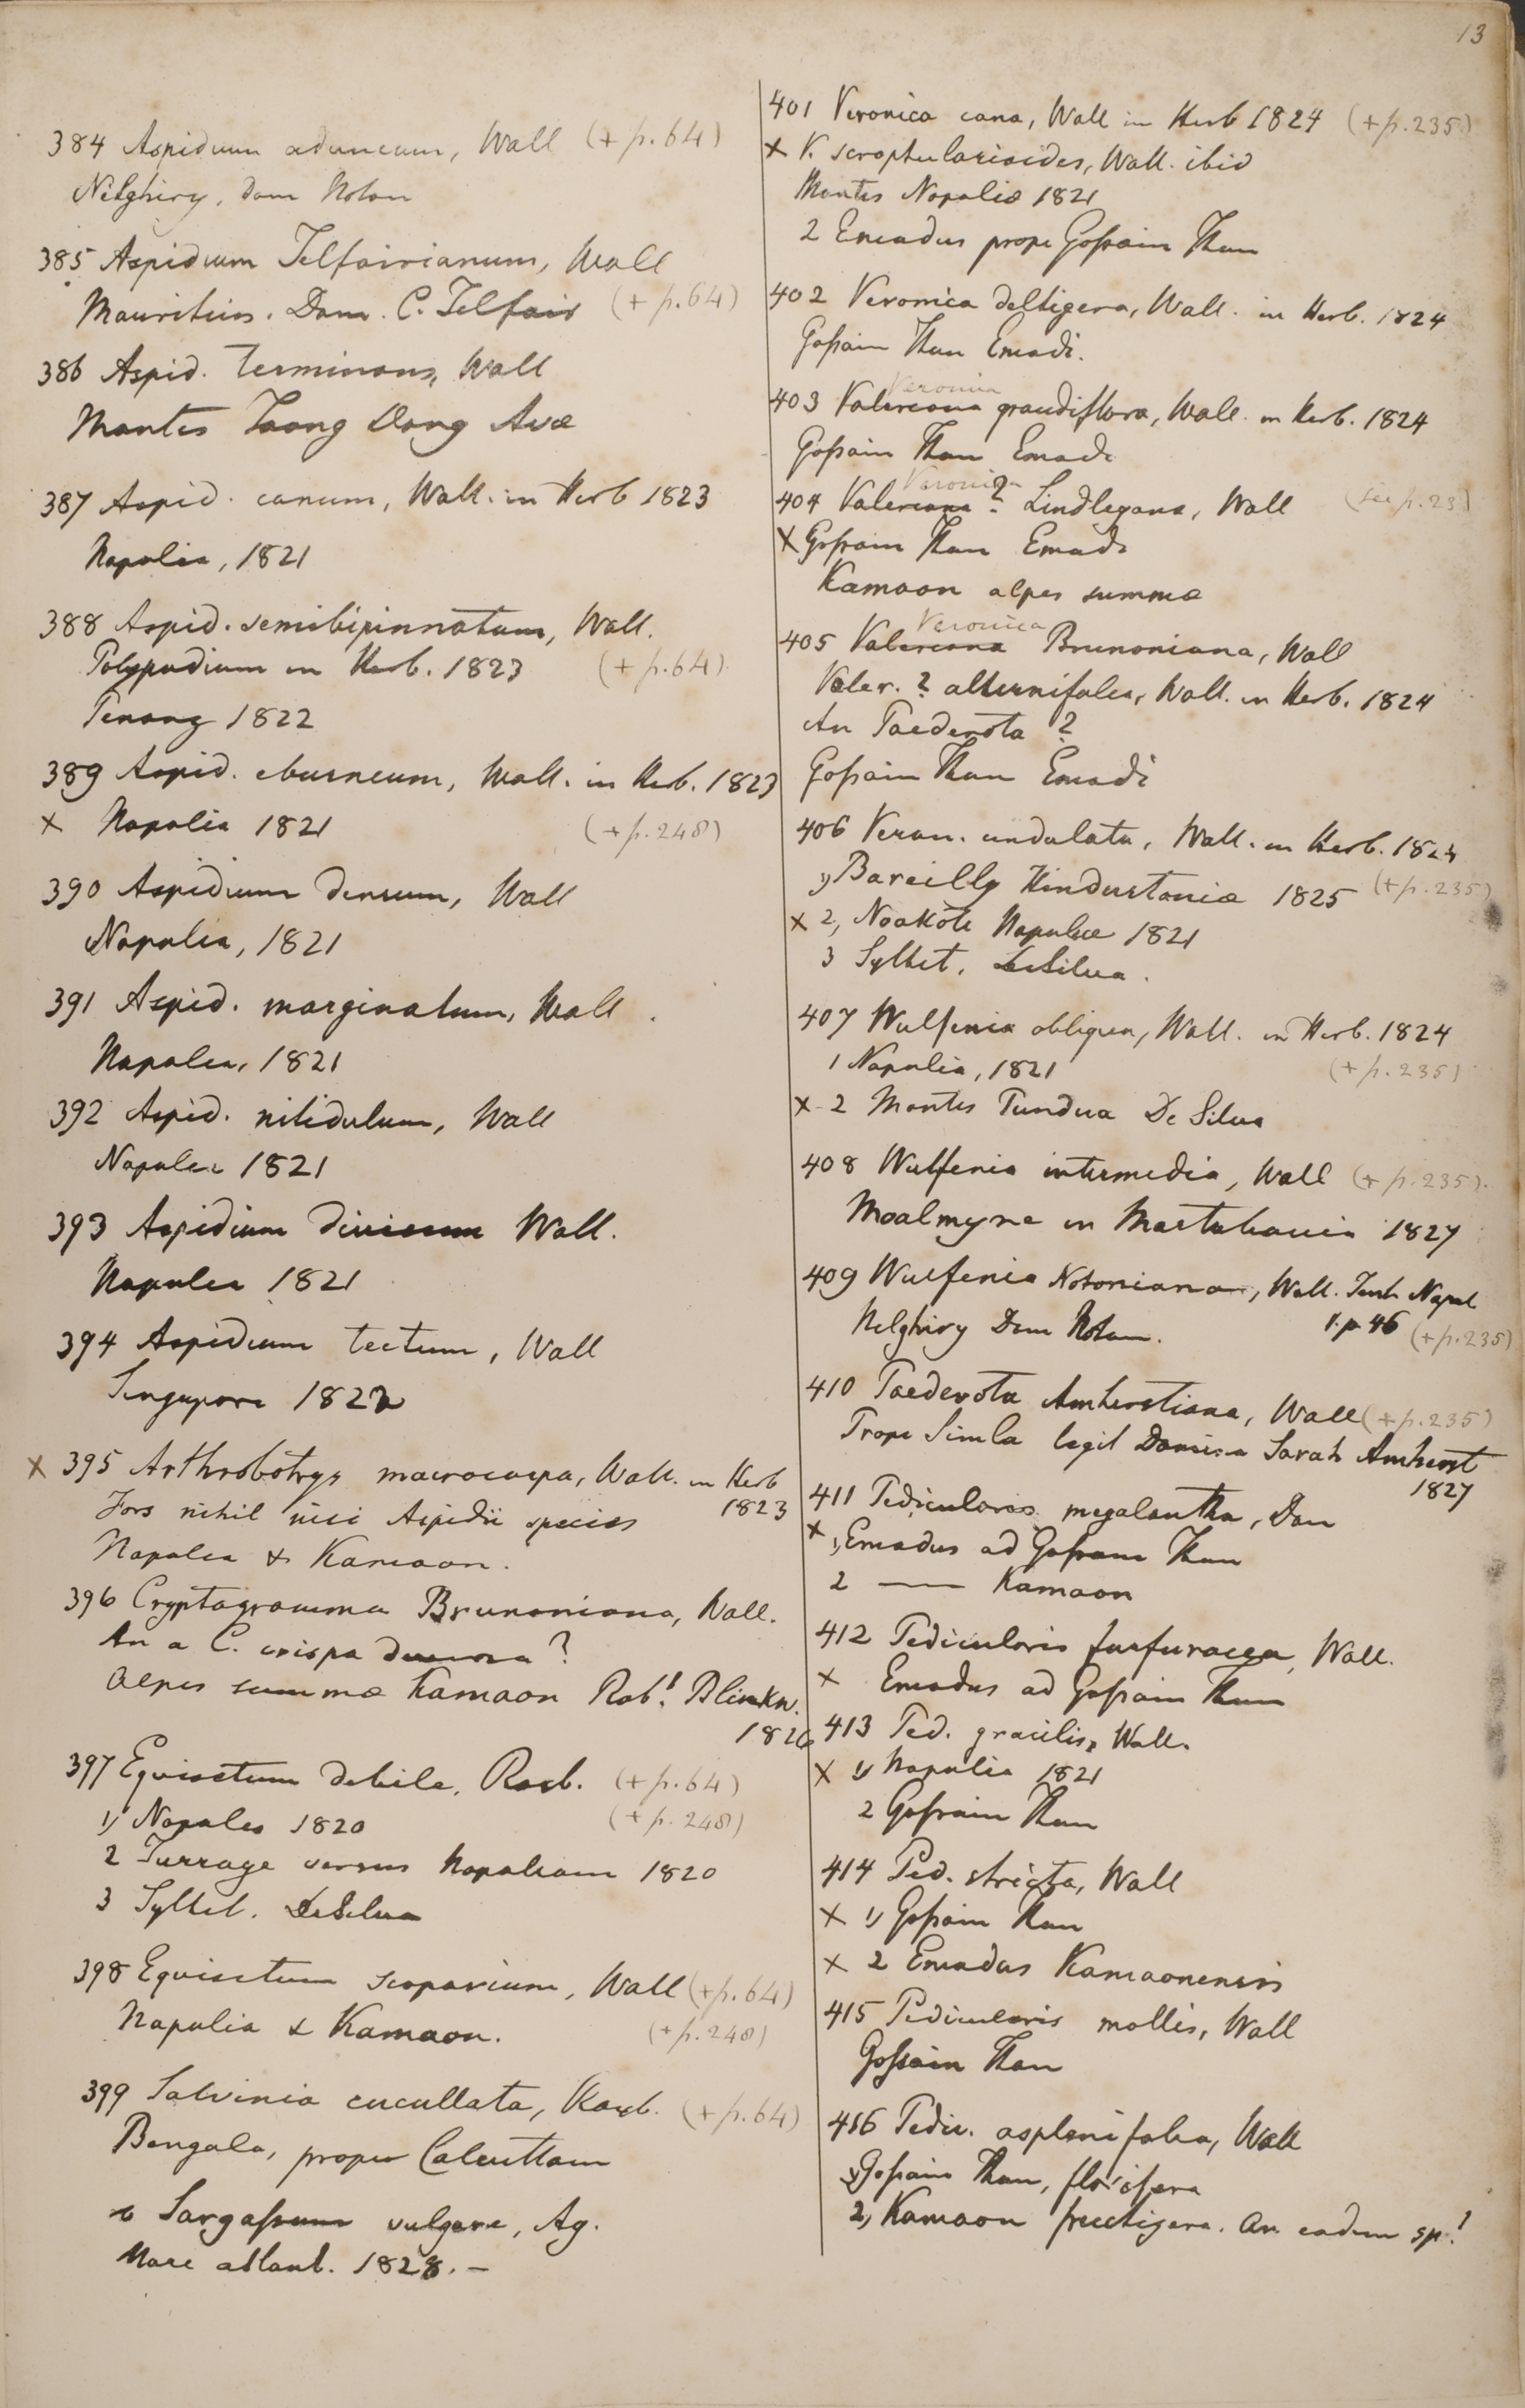 13
384 Aspidium aduncum, Wall (+ p.64)
Nilghiry, Dom Noton
385 Aspidium Telfairianum, Wall
Mauritius. Dom. C. Telfair (+ p.64)
386 Aspid. terminans, Wall
Montes Toong Dong Avæ
387 Aspid. canum, Wall. in Herb 1823
Napalia, 1821
388 Aspid. semibipinnatum, Wall.
Polypodium in Herb. 1823 (+ p.64)
Penang 1822
389 Aspid. eburneum, Wall. in Herb. 1823
x Napalia 1821 (+ p.248)
390 Aspidium densum, Wall
Napalia, 1821
391 Aspid. marginatum, Wall.
Napalia, 1821
392 Aspid. nitidulum, Wall
Napalia 1821
393 Aspidium divisum Wall.
Napalia 1821
394 Aspidium tectum, Wall
Singapore 1822
x 395 Arthrobotrys macrocarpa, Wall. in Herb
1823
Fors nihil nisi Aspidii species
Napalia & Kamaon.
396 Cryptogramma Brunoniana, Wall.
An a C. crispa diversa?
Alpes summæ Kamaon Robt. Blinkw.
1826
397 Equisetum debile, Roxb. (+ p.64)
1) Napalia 1820 (+ p.248)
2 Turraye versus Napaliam 1820
3 Syllet. DeSilva
398 Equisetum scoparium, Wall (+p.64)
Napalia & Kamaon. (+ p.248)
399 Salvinia cucullata, Roxb. (+ p.64)
Bengala, prope Calcuttam
Sargassum vulgare, Ag.
Mare atlant. 1828. –
401 Veronica cana, Wall in Herb 1824 (+p.235)
x V. scrophularioides, Wall. ibid
Montes Napaliæ 1821
2 Emodus prope Gossain Than
402 Veronica deltigera, Wall. in Herb. 1824
Gossain Than Emodi.
Veronica
403 Valeriana grandiflora, Wall. in Herb. 1824
Gossain Than Emodi
Veronica
404 Valeriana? Lindleyana, Wall (see p.23)
x Gossain Than Emodi
Kamaon alpes summæ
Veronica
405 Valeriana Brunoniana, Wall
Valer.? alternifolia, Wall. in Herb. 1824
An Paederota?
Gossain Than Emodi
406 Veron. undulata, Wall. in Herb. 1824
1) Bareilly Hindustaniæ 1825 (+ p.235)
x 2, Noakote Napaliæ 1821
3 Syllet. DeSilva.
407 Wulfenia obliqua, Wall. in Herb. 1824
1 Napalia, 1821 (+ p.235)
x 2 Montes Pundua De Silva
408 Wulfenia intermedia, Wall (+ p.235).
Moalmyne in Martabania 1827
409 Wulfenia Notoniana, Wall. Tent. Napal
1. p. 46 (+p.235)
Nelghiry Dom Noton.
410 Paederota Amherstiana, Wall (+p.235)
Prope Simla legit Domina Sarah Amherst
1827
411 Pedicularis megalantha, Don
x 1, Emodus ad Gossain Than
2 —— Kamaon
412 Pedicularis furfuracea, Wall.
x Emodus ad Gossain Than
413 Ped. gracilis, Wall.
x 1) Napalia 1821
2 Gossain Than
414 Ped. stricta, Wall
x 1) Gossain Than
x 2 Emodus Kamaonensis
415 Pedicularis mollis, Wall
Gossain Than
416 Pedic. asplenifolia, Wall
1) Gossain Than, florifera
2, Kamaon fructigera. An eadem sp.!